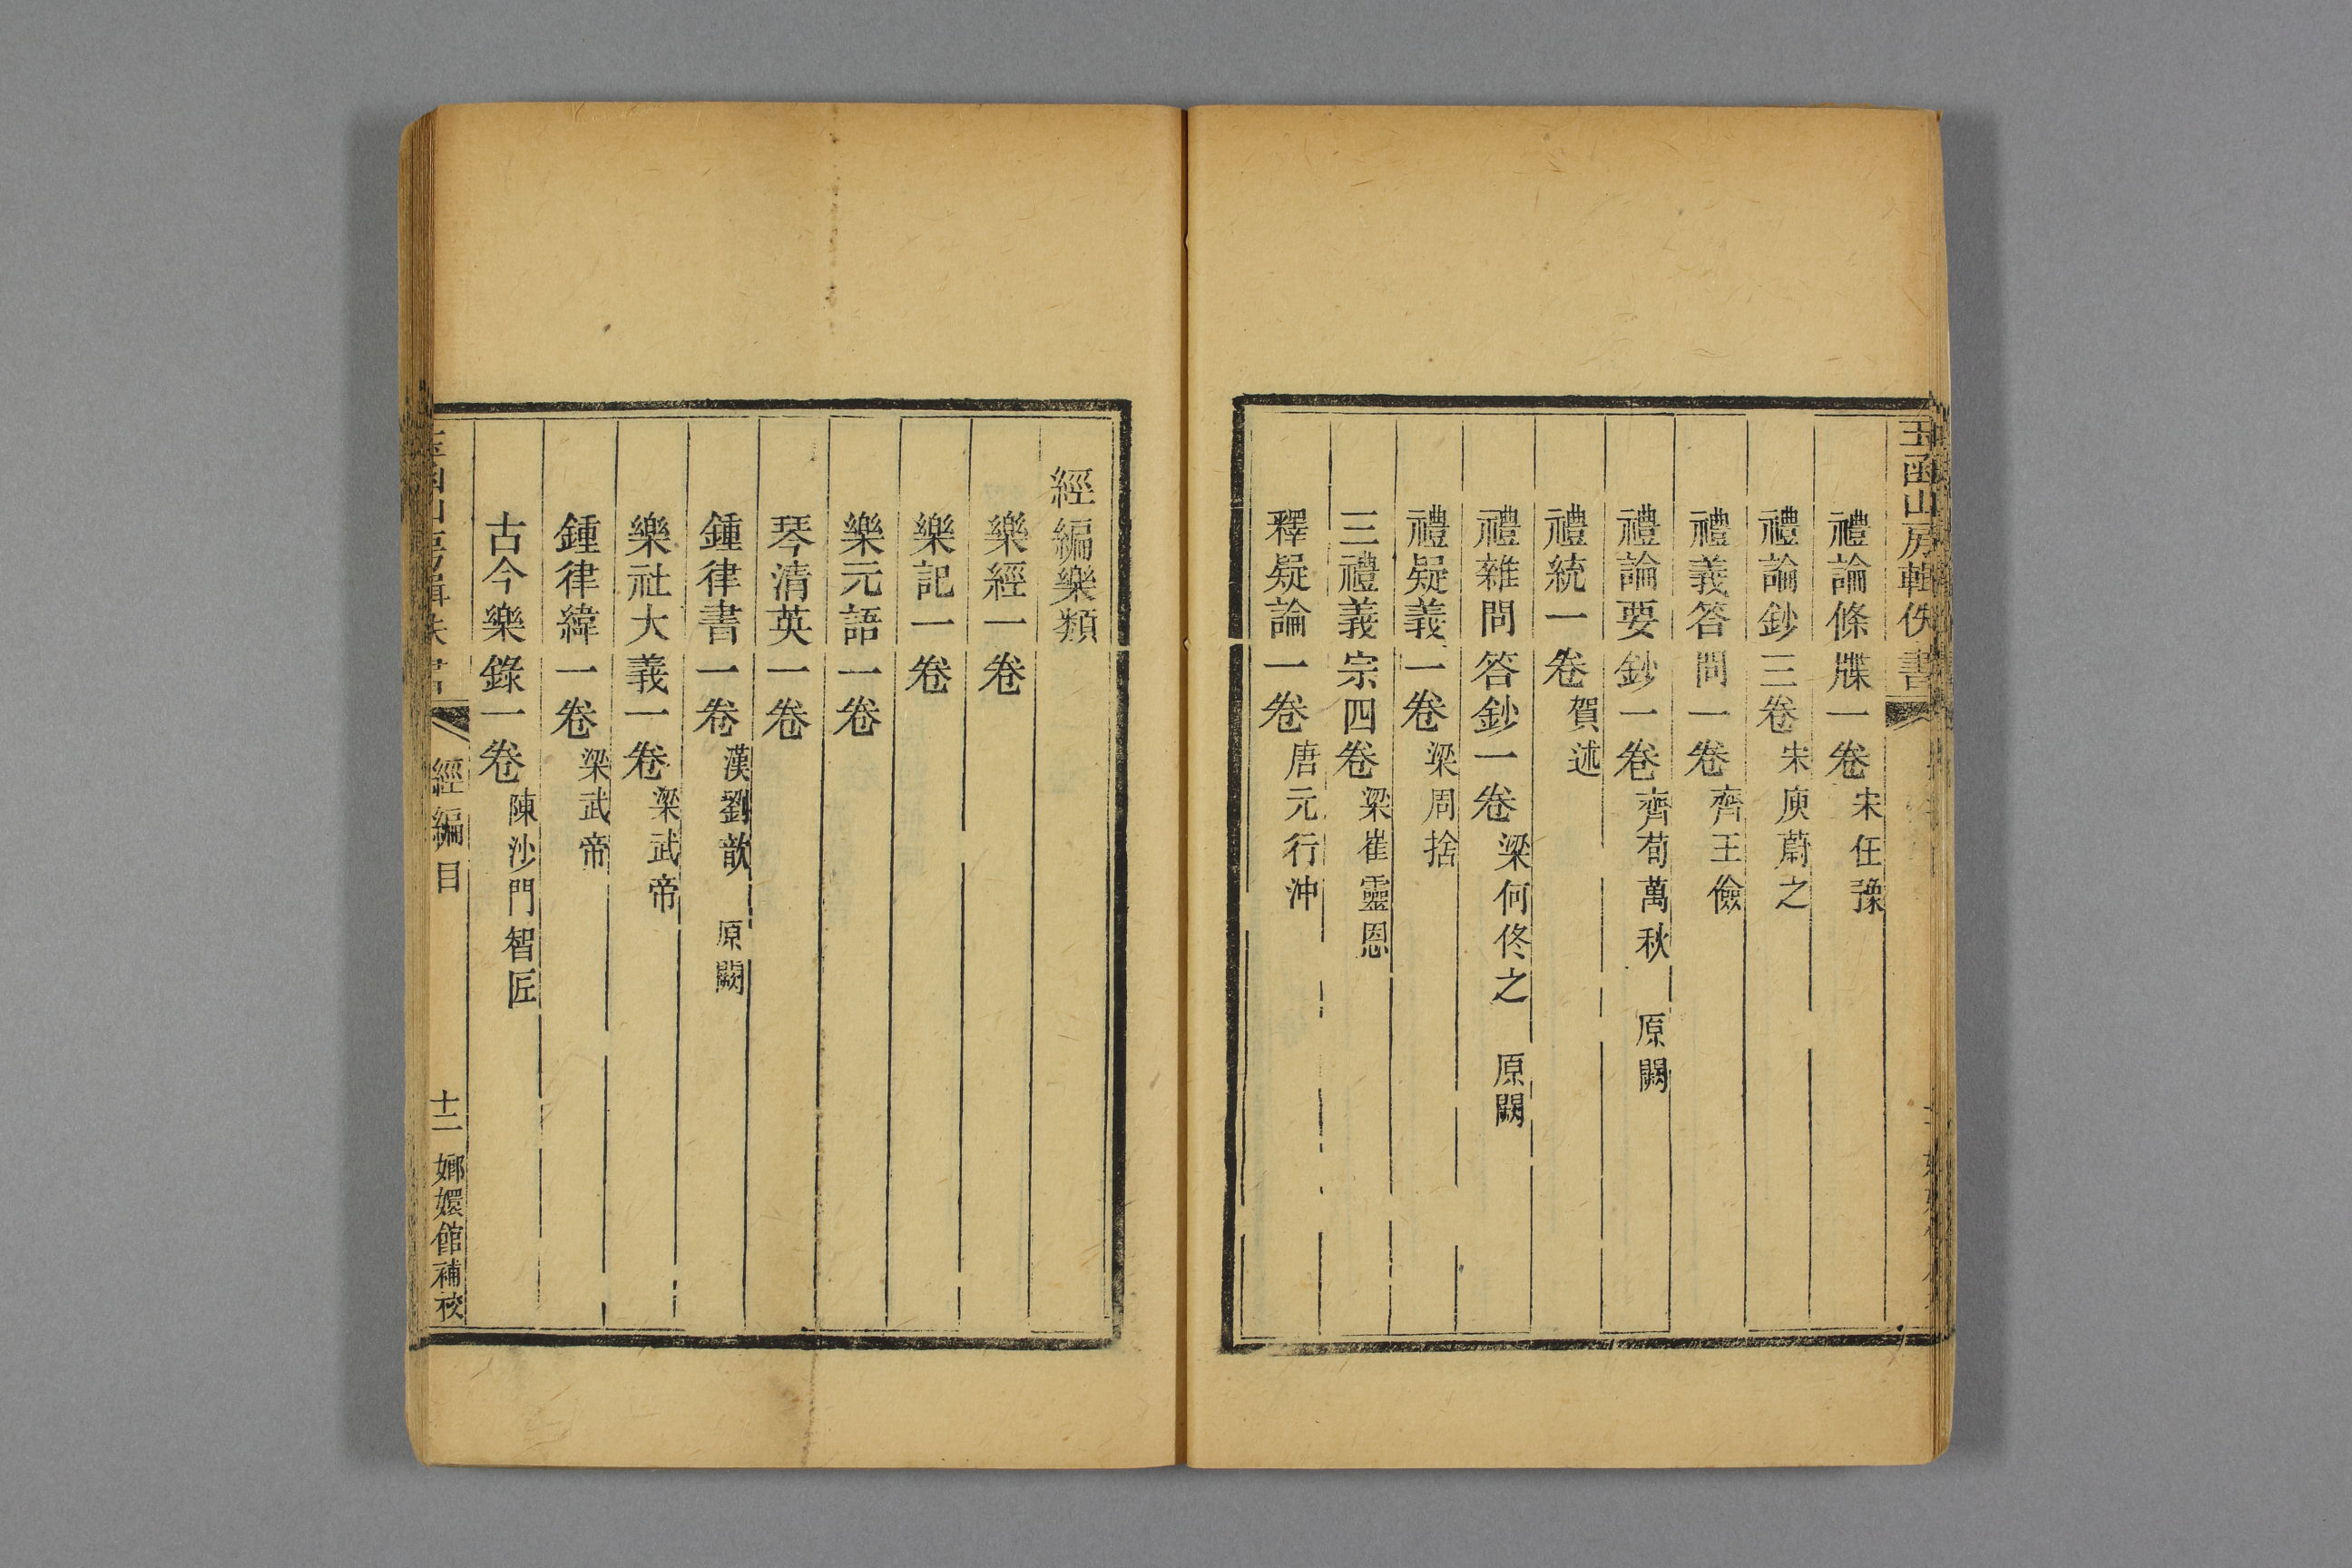 玉函山房輯佚書
禮論條牒一卷宋任豫
禮論鈔三卷宋庾蔚之
禮義答問一卷齊王儉
禮論要鈔一卷齊荀萬秋 原闕
禮統一卷賀述
禮雜問答鈔一卷梁何佟之 原闕
禮疑義一卷梁周捨
三禮義宗四卷梁崔靈恩
釋疑論一卷唐元行沖
經編樂類
樂經一卷
樂記一卷
樂元語一卷
琴清英一卷
鍾律書一卷漢劉歆 原闕
樂社大義一卷梁武帝
鍾律緯一卷梁武帝
古今樂錄一卷陳沙門智匠
經編目 十二 嫏嬛館補校